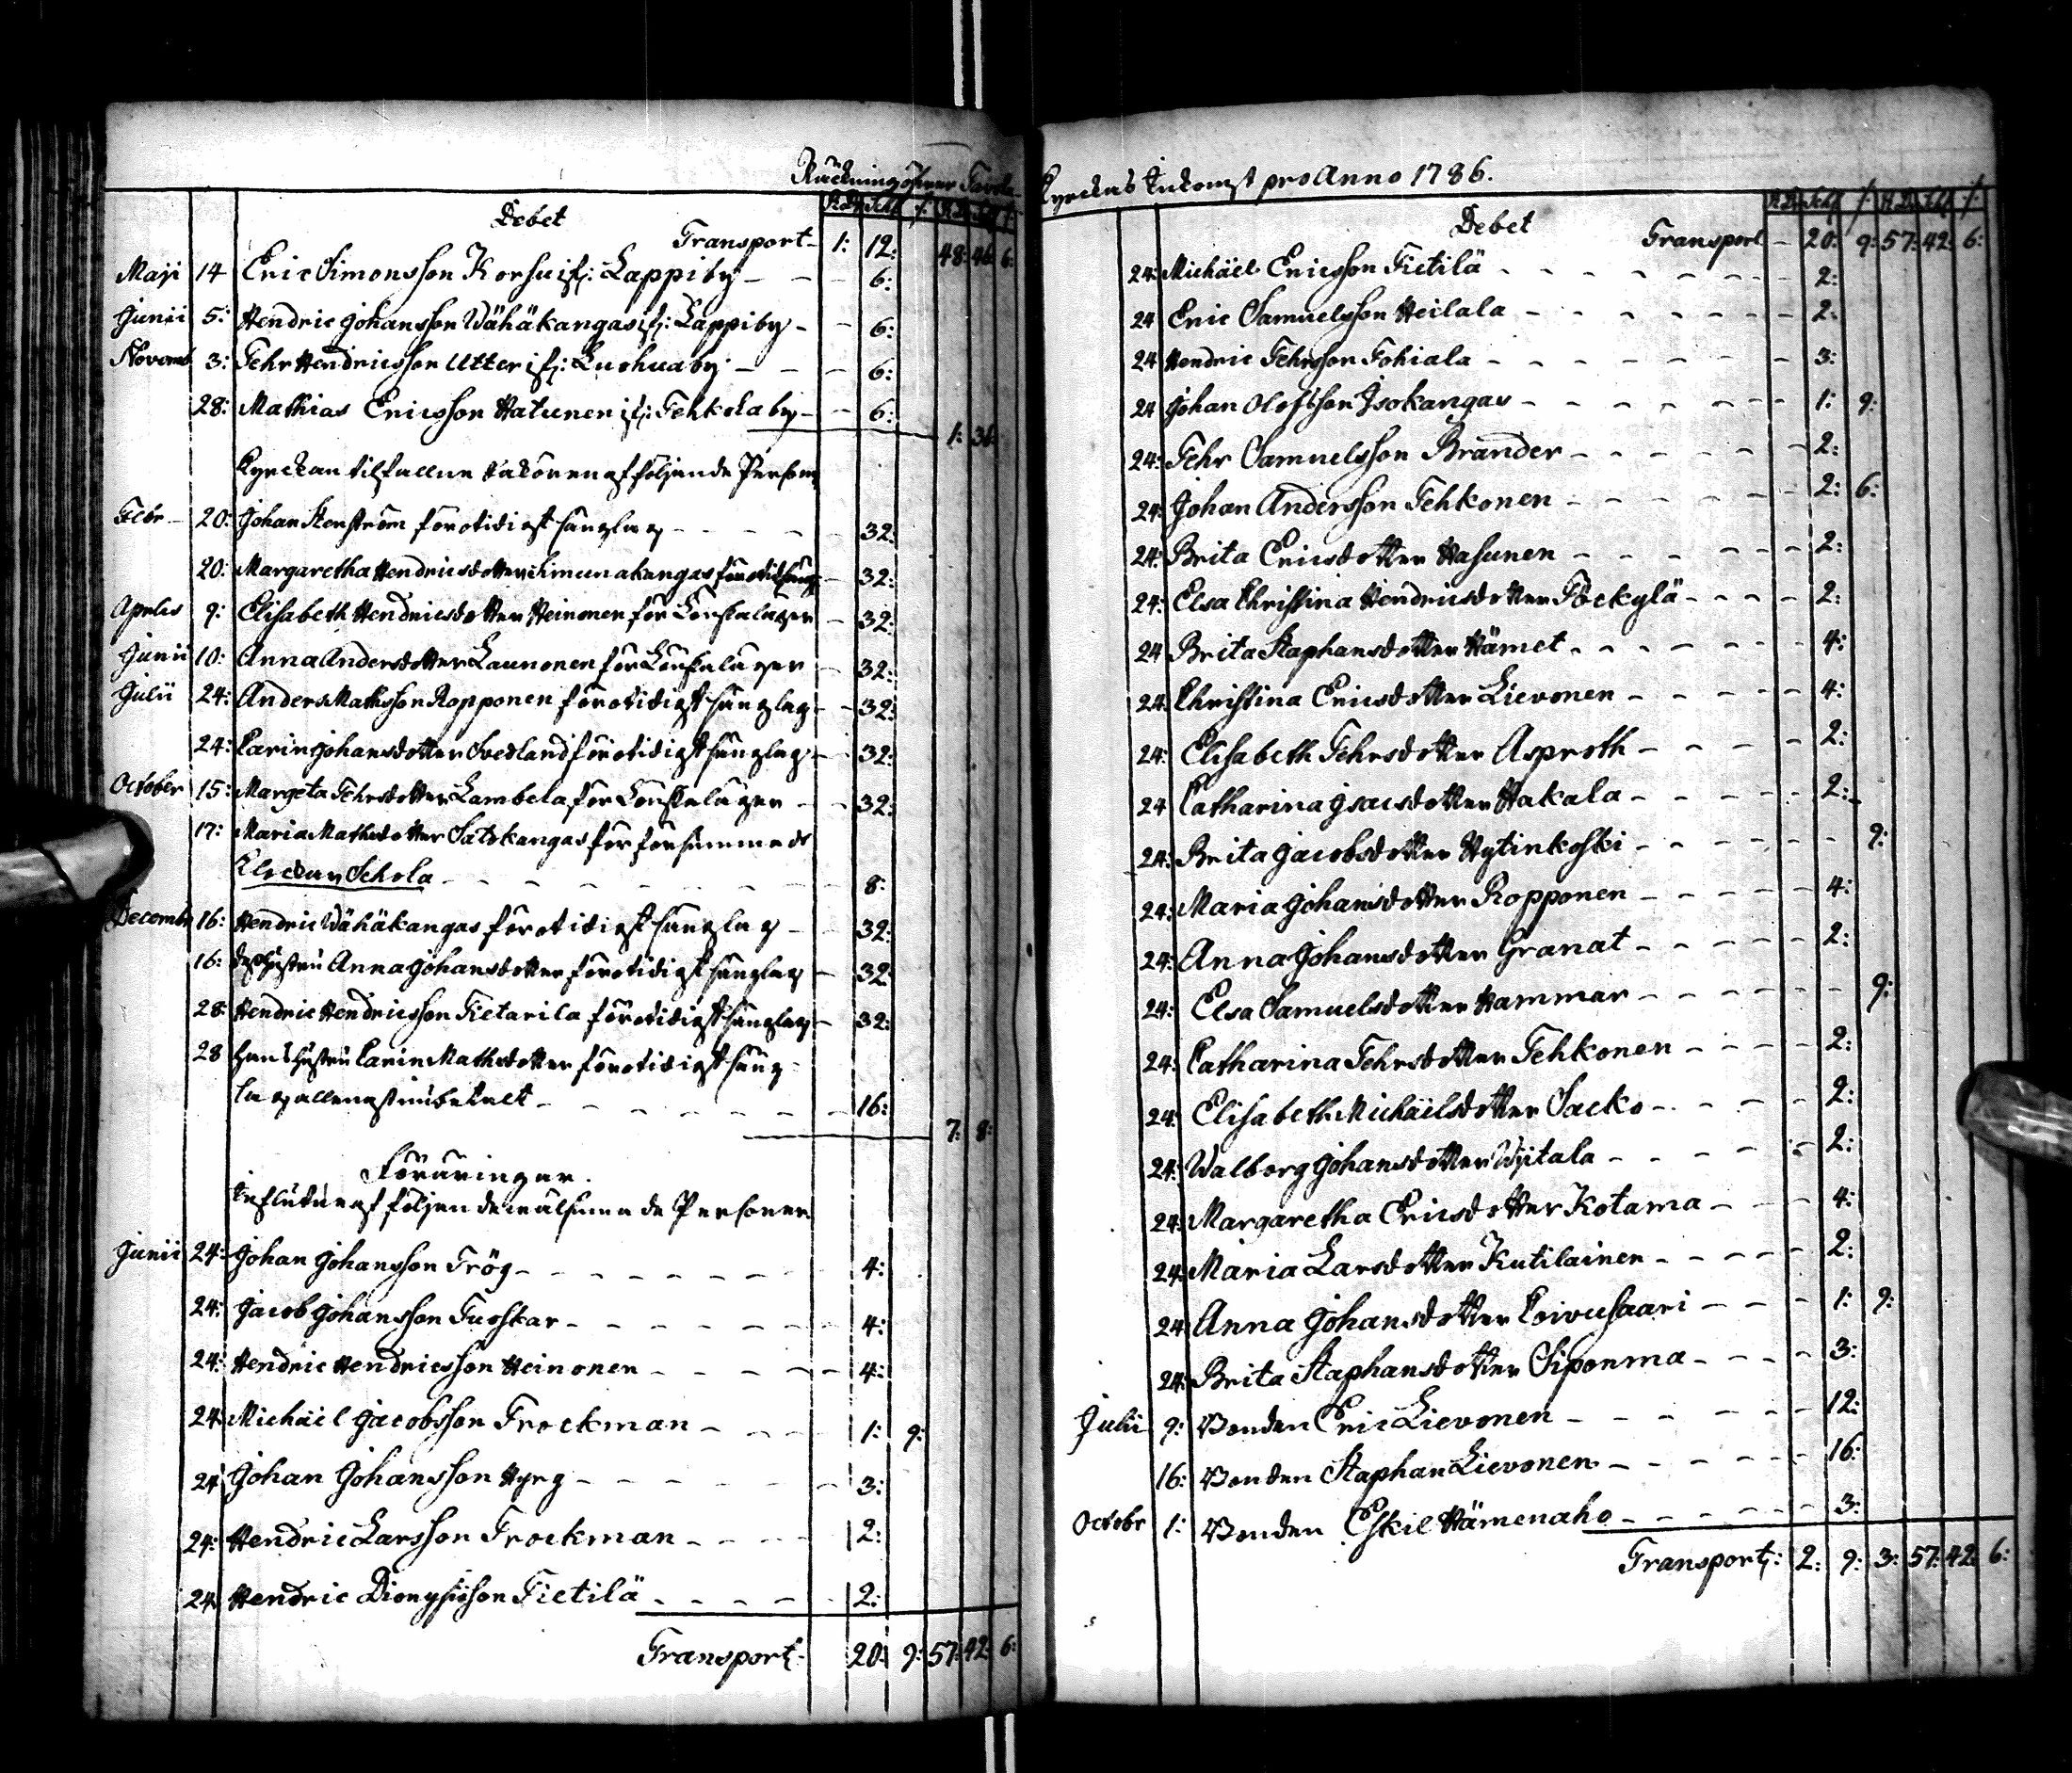 Räckning öfwer Tavola
Debet
R:Dr Schl: /: R:Dr Schl /:
Transport 1: 12: 48: 46: 6:
Maji 14 Eric Simonsson Korhu if: Lappiby 6:
Junii 5: Hendric Johansson Wähäkangas if: Lappiby 6:
Novemb 3: Pehr Hendricsson Utter if: Luohuaby 6:
28: Mathias Ericsson Hatunen if: Pehkolaby 6:
1: 36:
Kyrckan tilfallne sakören af följande Personer
Febr 20: Johan Stenström för otidigt sänglag 32:
20: Margaretha Hendricsdotter för otid: säng: 32:
Aprilis 9: Elisabeth Hendricsdotter Heinonen för Lönskaläger 32:
Junii 10: Anna Andersdotter Launonen för Lönskaläger 32:
Julii 24: Anders Mathsson Ropponen för otidigt sänglag 32:
24: Carin Johansdotter Svedland för otidigt sänglag 32:
October 15: Margeta Pehrsdotter Lambela för Lönskaläger 32:
17: Maria Mathsdotter Satokangas för försummade
Klockar Schola 8:
Decembr 16: Hendric Wähäkangas för otidigt sänglag 32:
16: dess Hustru Anna Johansdotter för otidigt sänglag 32
28: Hendric Hendricsson Pietarila för otidigt sänglag 32:
28 Hans Hustru Carin Mathsdotter för otidigt säng-
lag allenast inbetalt 16:
7: 8:
Föräringar.
Influtne af följande wälsinnade Personer
Junii 24: Johan Johansson Frög 4:
24: Jacob Johansson Fuoskar 4:
24: Hendric Hendricsson Heinonen 4:
24: Michäel Jacobsson Frockman 1: 9:
24 Johan Johansson Hyrg 3:
24: Hendric Larsson Frockman 2:
24 Hendric Dionysisson Pietilä 2:
Transport: 20: 9: 57: 42: 6:
Kyrckas Inkomst pro Anno 1786.
Debet
R:Dr Schl /: R:Dr Schl /:
Transport 20: 9: 57: 42: 6:
24: Michäel Ericsson Pietilä 2:
24 Eric Samuelsson Heilala 2:
24 Hendric Pehrsson Pohiala 3:
24 Johan Olofsson Isokangas 1: 9:
24: Pehr Samuelsson Brander 2:
24: Johan Andersson Pehkonen 2: 6:
24: Brita Ericsdotter Hasunen 2:
24: Elsa Christina Hendricsdotter Pöckylä 2:
24 Brita Staphansdotter Hämet 4:
24: Christina Ericsdotter Lievonen 4:
24: Elisabeth Pehrsdotter Asproth 2:
24 Catharina Isacsdotter Hakala 2:
24: Brita Jacobsdotter Hytinkoski 9:
24: Maria Johansdotter Ropponen 4:
24: Anna Johansdotter Granat 2:
24: Elsa Samuelsdotter Hammar 9:
24: Catharina Pehrsdotter Pehkonen 2:
24: Elisabeth Michäelsdotter Sacko 2:
24: Walborg Johansdotter Wijtala 2:
24: Margaretha Ericsdotter Kotama 4:
24: Maria Larsdotter Kutilainen 2:
24 Anna Johansdotter Coivusaari 1: 9:
24: Brita Staphansdotter Siponma 3:
Julii 9: Bonden Eric Lievonen 12:
16: Bonden Staphan Lievonen 16:
Octobr 1: Bonden Eskil Hämenaho 3:
Transport: 2: 9: 3: 57: 42: 6: